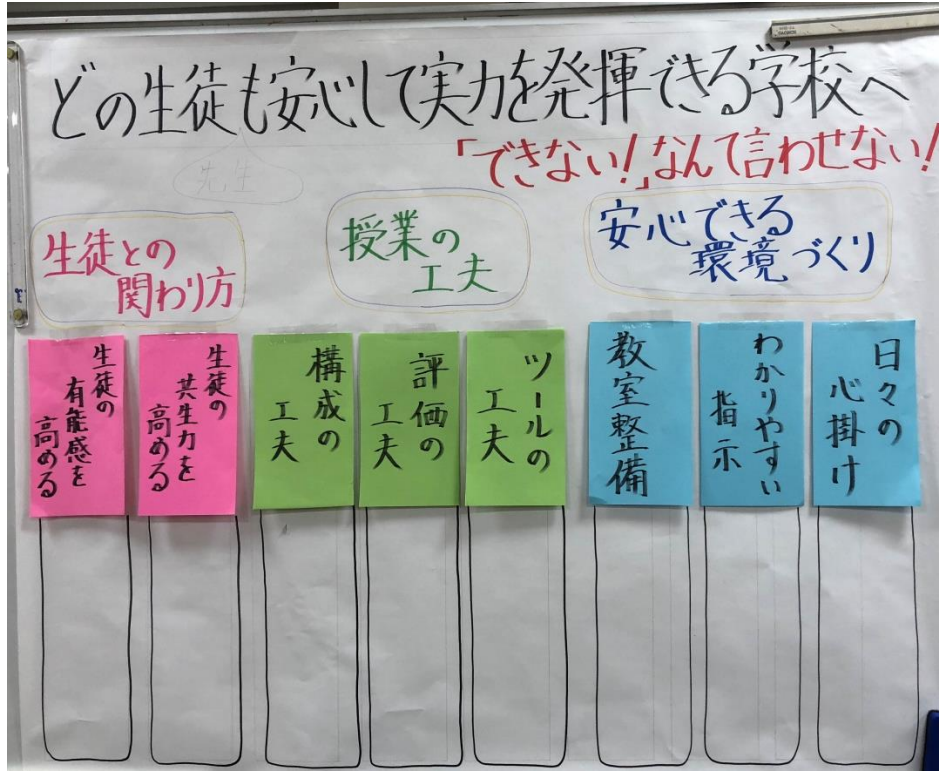 どの生徒も安心して実力を発揮できる学校へ
「できない！」なんて言わせない！
先生
生徒との
関わり方
授業の
工夫
安心できる
環境づくり
生徒の
有能感を
高める
生徒の
共生力を
高める
構成の
工夫
評価の
工夫
ツールの
工夫
教室整備
わかりやすい
指示
日々の
心掛け